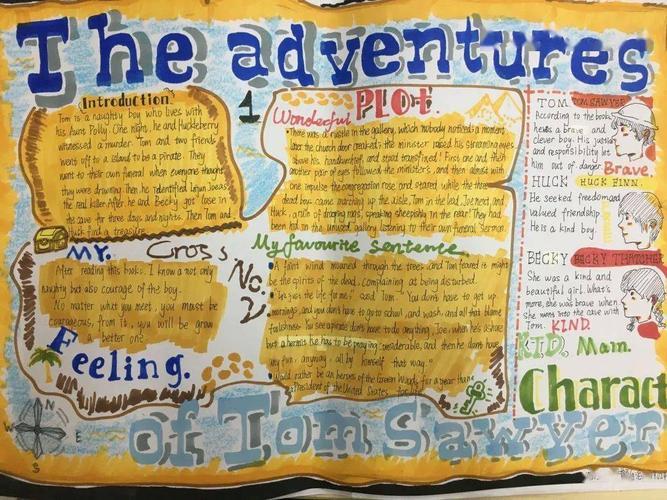 The adventures
Introduction
Tom is a naughty boy who lives with
his Aunt Polly. One night, he and Huckleberry
witnessed a murder. Tom and two friends
went off to a island to be a pirate. They
went to their own funeral when everyone thought
they were drowning. Then he identified Injun Joe as
the real killer. After he and Becky got lose in
the cave for three days and nights. Then Tom and
Huck find a treasure.
1
Wonderful PLOT.
There was a rustle in the gallery, which nobody noticed; a moment
after the church door creaked; the minister raised his streaming eyes
above his handkerchief, and stood transfixed! First one and then
another pair of eyes followed the minister's, and then almost with
one impulse the congregation rose and stared while the three
dead boys came marching up the aisle, Tom in the lead, Joe next, and
Huck, a ruin of drooping rags, sneaking sheepishly in the rear! They had
been hid in the unused gallery listening to their own funeral sermon
TOM TOM SAWYER
According to the book,
he was a brave and
clever boy. His justice
and responsibility let
him out of danger. Brave.
HUCK HUCK FINN.
He seeked freedom and
valued friendship.
He is a kind boy.
BECKY BECKY THATCHER
She was a kind and
beautiful girl. What's
more, she was brave when
she was into the cave with
Tom. KIND.
KID. Main.
Charact
My.
Cross.
No.
2
After reading this book, I know a not only
naughty but also courage of the boy.
No matter what you meet, you must be
courageous, from it, you will be grow
a better one.
Feeling.
My favourite sentence
A faint wind moaned through the trees, and Tom feared it might
be the spirits of the dead, complaining at being disturbed.
the life for me," said Tom. "You don't have to get up
mornings, and you don't have to go to school, and wash, and all that blame
foolishness. You see a pirate don't have to do anything, Joe, when he's ashore
but a hermit he has to be praying considerable, and then he don't have
any fun, anyway, all by himself that way."
would rather be an heroes of the for a year than
President of the United States for
N
W E
S
of Tom Sawyer